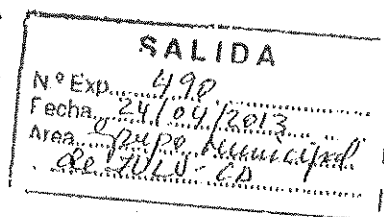 SALIDA
N.º Exp. 490
Fecha 24/04/2013
Area Grupo Municipal
de IULV-CA